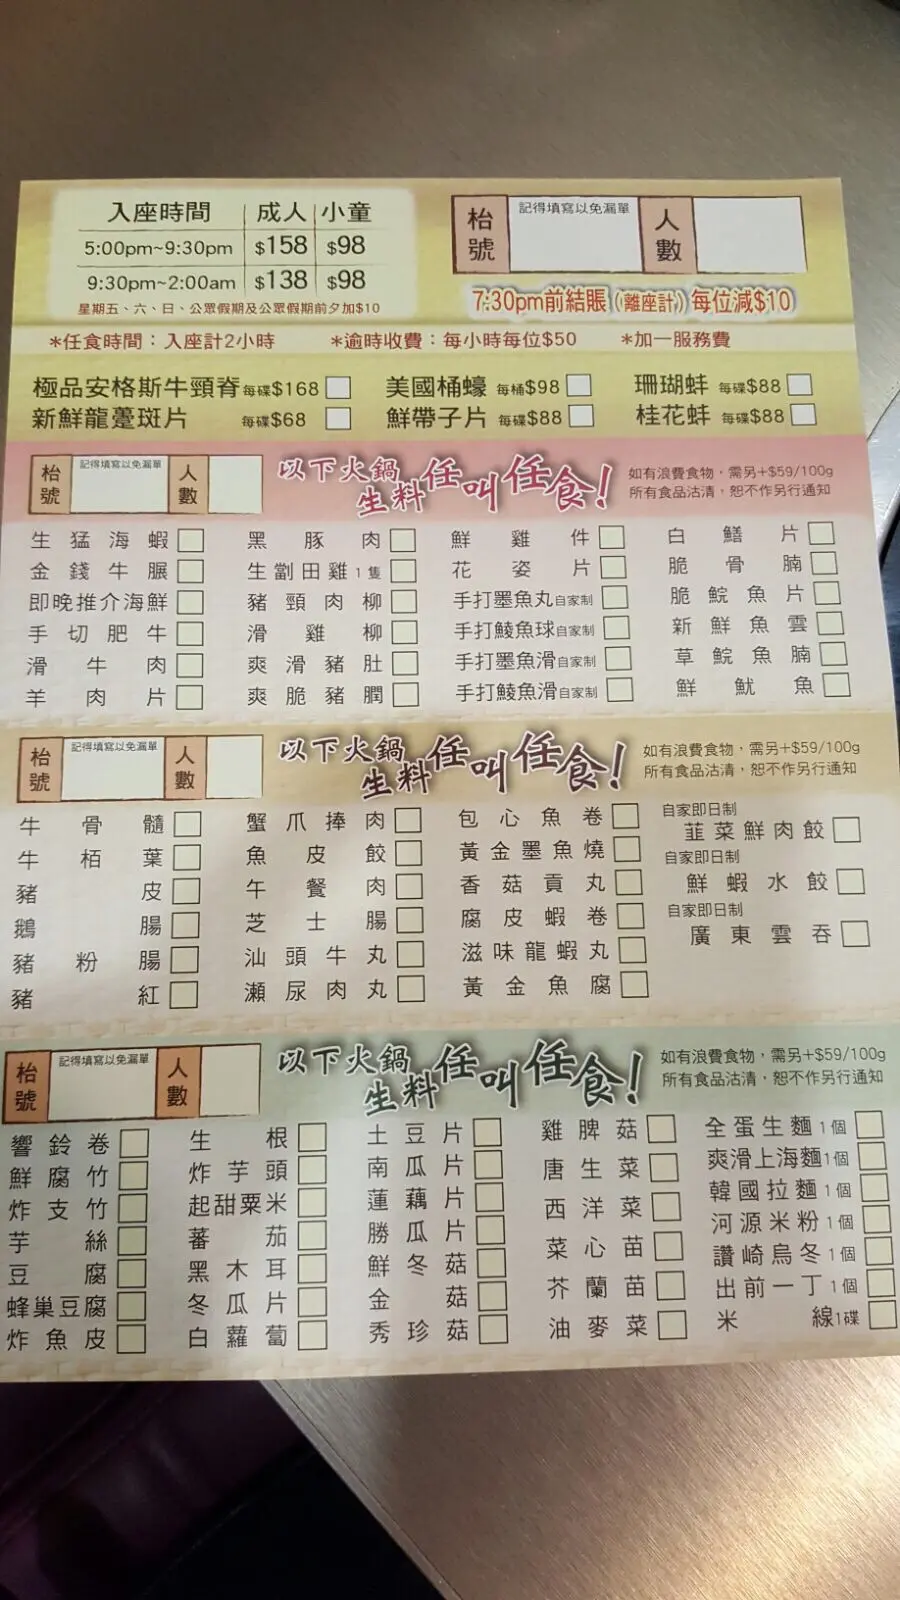 入座時間 成人 小童
5:00pm~9:30pm $158 $98
9:30pm~2:00am $138 $98
星期五、六、日、公眾假期及公眾假期前夕加$10
枱號 記得填寫以免漏單 人數
7:30pm前結賬(離座計)每位減$10
*任食時間：入座計2小時 *逾時收費：每小時每位$50 *加一服務費
極品安格斯牛頸脊 每碟$168 美國桶蠔 每桶$98 珊瑚蚌 每碟$88
新鮮龍躉斑片 每碟$68 鮮帶子片 每碟$88 桂花蚌 每碟$88
枱號 記得填寫以免漏單 人數
以下火鍋生料任叫任食！
如有浪費食物，需另+$59/100g
所有食品沽清，恕不作另行通知
生猛海蝦 黑豚肉 鮮雞件 白鱔片
金錢牛𦟌 生劏田雞1隻 花姿片 脆骨腩
即晚推介海鮮 豬頸肉柳 手打墨魚丸自家制 脆鯇魚片
手切肥牛 滑雞柳 手打鯪魚球自家制 新鮮魚雲
滑牛肉 爽滑豬肚 手打墨魚滑自家制 草鯇魚腩
羊肉片 爽脆豬膶 手打鯪魚滑自家制 鮮魷魚
枱號 記得填寫以免漏單 人數
以下火鍋生料任叫任食！
如有浪費食物，需另+$59/100g
所有食品沽清，恕不作另行通知
牛骨髓 蟹爪捧肉 包心魚卷 自家即日制 韮菜鮮肉餃
牛栢葉 魚皮餃 黃金墨魚燒 自家即日制
豬皮 午餐肉 香菇貢丸 鮮蝦水餃
鵝腸 芝士腸 腐皮蝦卷 自家即日制 廣東雲吞
豬粉腸 汕頭牛丸 滋味龍蝦丸
豬紅 瀨尿肉丸 黃金魚腐
枱號 記得填寫以免漏單 人數
以下火鍋生料任叫任食！
如有浪費食物，需另+$59/100g
所有食品沽清，恕不作另行通知
響鈴卷 生根 土豆片 雞脾菇 全蛋生麵1個
鮮腐竹 炸芋頭 南瓜片 唐生菜 爽滑上海麵1個
炸支竹 起甜粟米 蓮藕片 西洋菜 韓國拉麵1個
芋絲 蕃茄 勝瓜片 菜心苗 河源米粉1個
豆腐 黑木耳 鮮冬菇 芥蘭苗 讚崎烏冬1個
蜂巢豆腐 冬瓜片 金菇 油麥菜 出前一丁1個
炸魚皮 白蘿蔔 秀珍菇 米線1碟